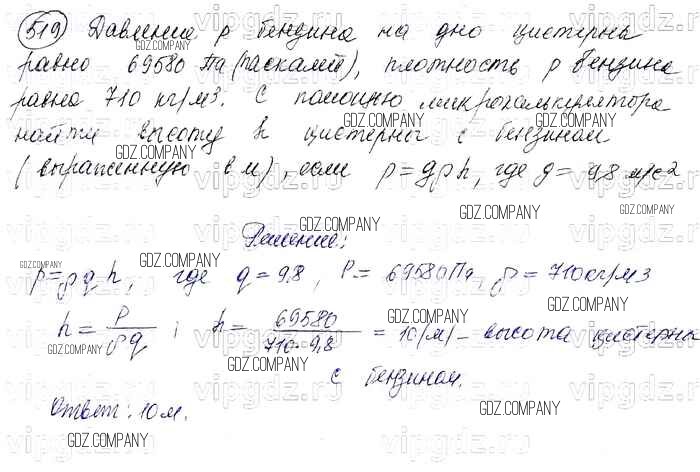 519 Давление р бензина на дно цистерны
равно 69580 Па (паскалей), плотность ρ бензина
равна 710 кг/м3. С помощью микрокалькулятора
найти высоту h цистерны с бензином
(выраженную в м), если p=gρh, где g= 9,8 м/с2
Решение:
p=ρgh, где g=9,8, P= 69580Па, ρ=710кг/м3
h= P/ρg ; h= 69580/710·9,8 = 10(м)- высота цистерны
с бензином.
Ответ: 10м.
GDZ.COMPANY
vipgdz.ru